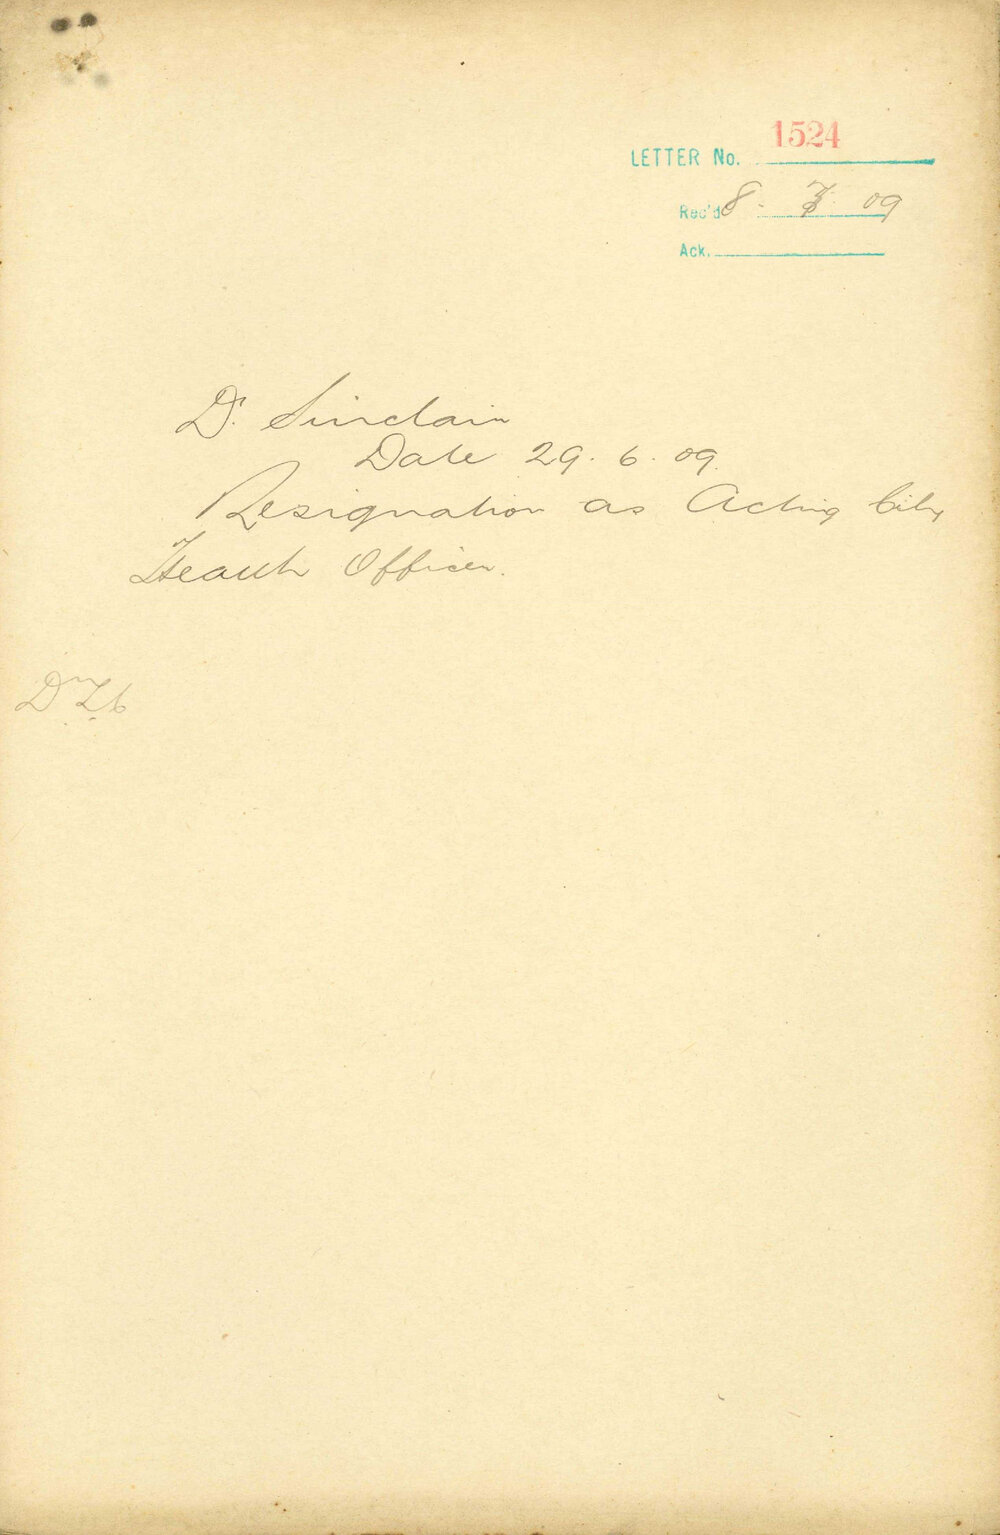 LETTER No. 1524
Rec'd 8. 7. 09
Ack.
Dr. Sinclair
Date 29. 6. 09.
Resignation as Acting City
Health Officer.